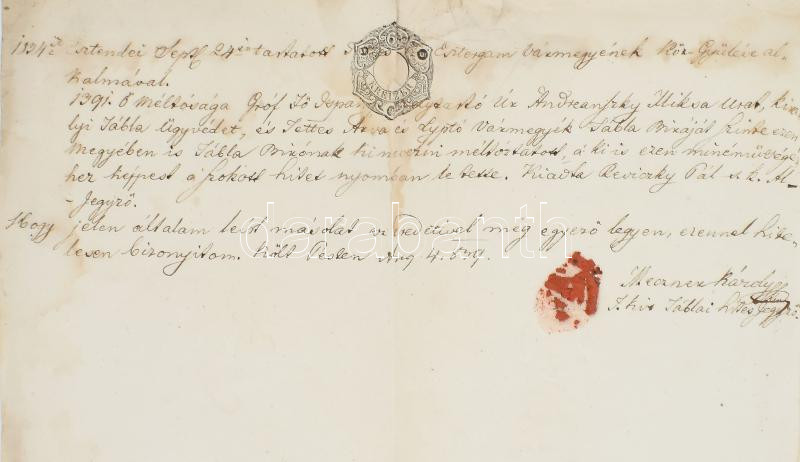 Esztendei Sept 24én tartatott Esztergam Vármegyének Köz-Gyülése al-
kalmával.
1391. Ő Méltósága Gróf Fö Ispán Úr Andreanszky Miksa Urat, kirá-
lyi Tábla Ügyvédet, és Tettes Arva és Lyptó Vármegyék Tábla Biráját szinte ezen
Megyében is Tábla Birónak kinevezni méltóztatott, a ki is ezen minémüségé-
hez képpest a szokott hitet nyomban le tette. Kiadta Reviczky Pál s.k. Al-
Jegyző.
Hogy jelen általam lett másolat az eredetivel meg egyező legyen, ezennel hite-
lesen bizonyitom. költ Pesten Aug 4. 839.
Meczner Károly
T. kir Táblai hites Jegyző.
darabanth